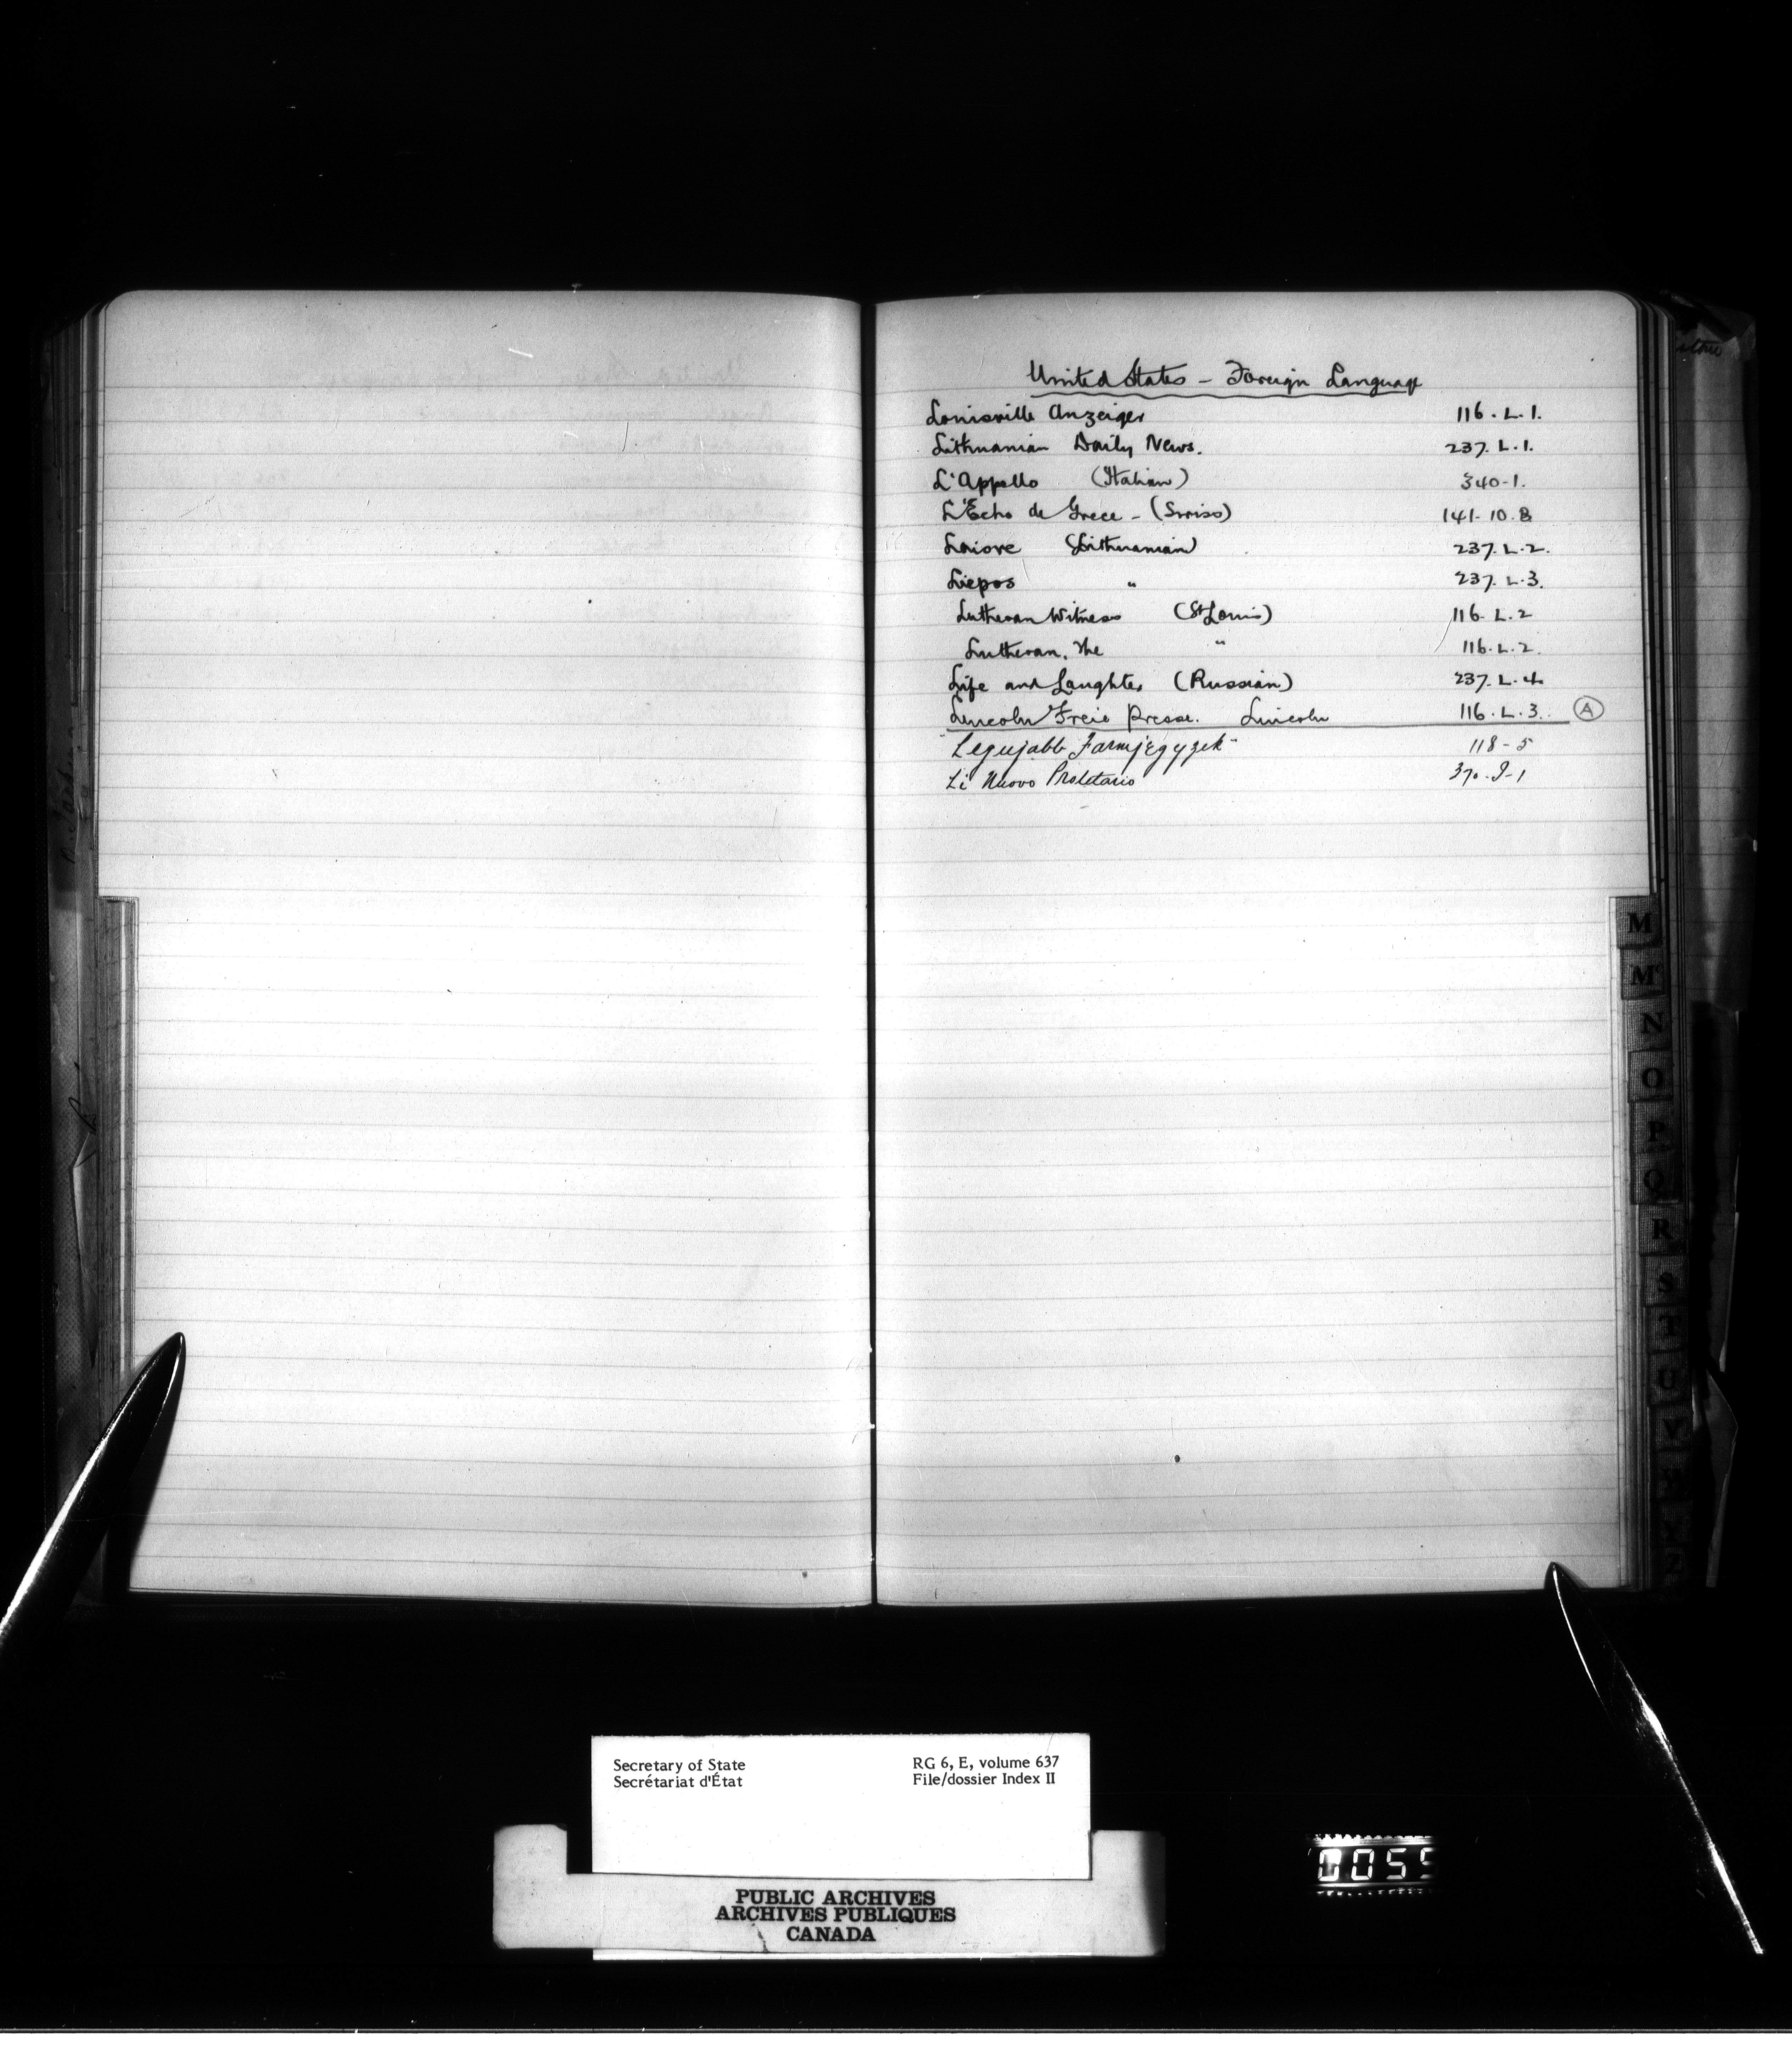 United States – Foreign Language
Louisville Anzeiger 116. L. 1.
Lithuanian Daily News. 237. L. 1.
L'Appello (Italian) 340-1.
L'Echo de Grece – (Swiss) 141-10.8
Laisve (Lithuanian) 237. L. 2.
Liepos " 237. L. 3.
Lutheran Witness (St Louis) 116. L. 2
Lutheran, The " 116. L. 2.
Life and Laughter (Russian) 237. L. 4
Lincoln Freie Presse. Lincoln 116. L. 3. A
"Legujabb Farmjegyzek" 118-5
Li Nuovo Proletario
M
Mc
N
O
P
Q
R
S
T
U
V
Secretary of State RG 6, E, volume 637
Secrétariat d'État File/dossier Index II
PUBLIC ARCHIVES
ARCHIVES PUBLIQUES
CANADA
0055